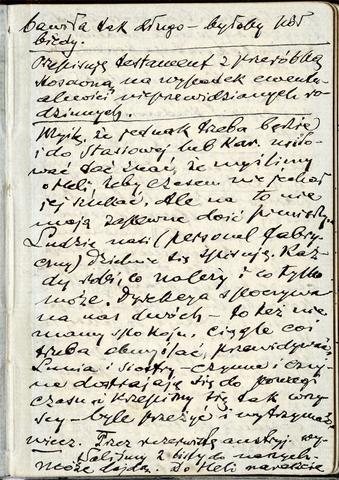 bawiła tak długo – byłoby pół
biedy.
Przepisuję testament z przeróbką
na wypadek ewentu-
alności nieprzewidzianych ro-
dzinnych.
że jednak trzeba będzie
i do Stasiowej lub Kar. 
wać dać znać, że myślimy
o Heli, żeby czasem nie jechał
jej szukać. Ale na to nie
mają zapewne dość pieniędzy.
Ludzie nasi (personel fabry-
czny) dzielnie się spisują. Każ-
dy robi, co należy i co tylko
może. Dyrekcja spoczywa
na nas dwóch – to też nie
mamy spokoju, ciągle coś
trzeba obmyślać, przewidywać.
Lunia i siostry – czynne i czyn-
ne dostrajają się do powagi
czasu i krzepimy się tak wszy-
scy – byle przeżyć i wytrzymać
wiecz. Przez austryj. wy-
słaliśmy 2 listy do naszych –
może dojdą. Do Heli nareszcie